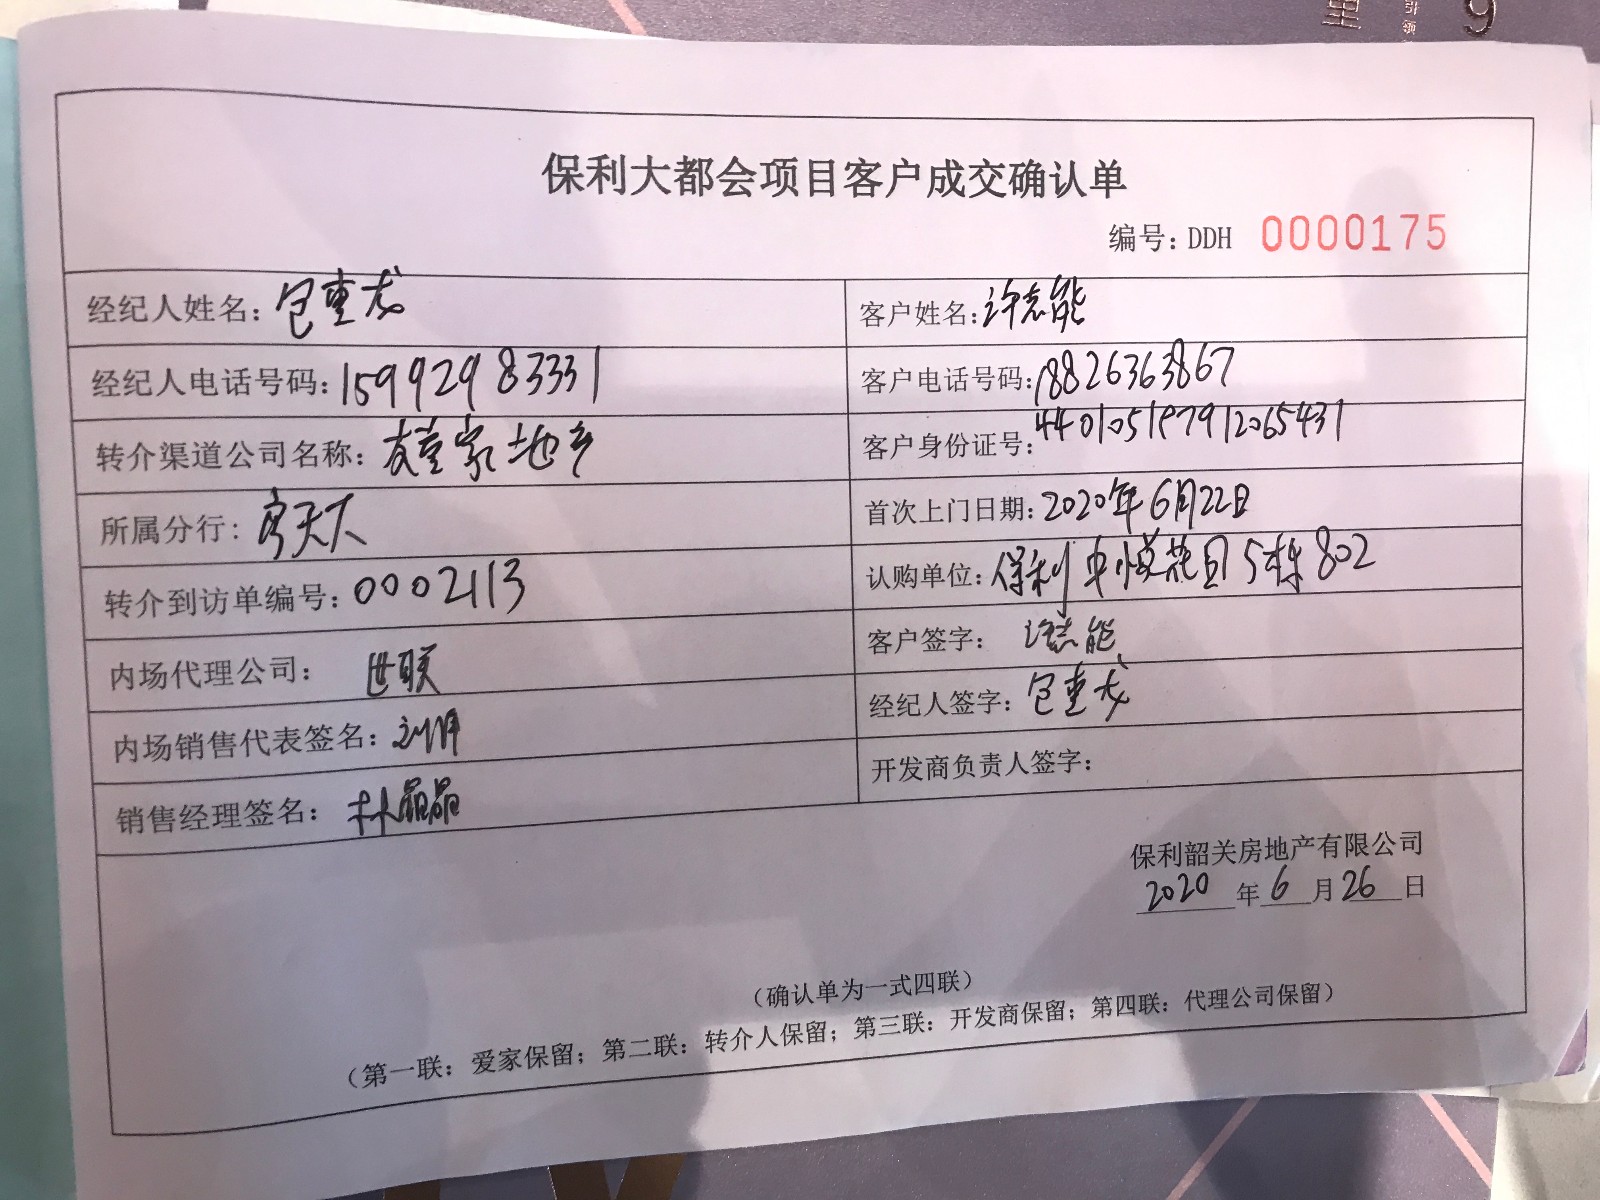 保利大都会项目客户成交确认单
编号: DDH 0000175
经纪人姓名: 包重龙
客户姓名: 许志能
经纪人电话号码: 15992983331
客户电话号码: 18826363867
转介渠道公司名称: 家地乡
客户身份证号: 440105197912065431
所属分行: 房天下
首次上门日期: 2020年6月22日
转介到访单编号: 0002113
认购单位: 保利中悦花园5栋802
内场代理公司: 世联
客户签字: 许志能
内场销售代表签名: 刘
经纪人签字: 包重龙
销售经理签名: 林晶晶
开发商负责人签字:
保利韶关房地产有限公司
2020年6月26日
(确认单为一式四联)
(第一联: 爱家保留; 第二联: 转介人保留; 第三联: 开发商保留; 第四联: 代理公司保留)
里
9